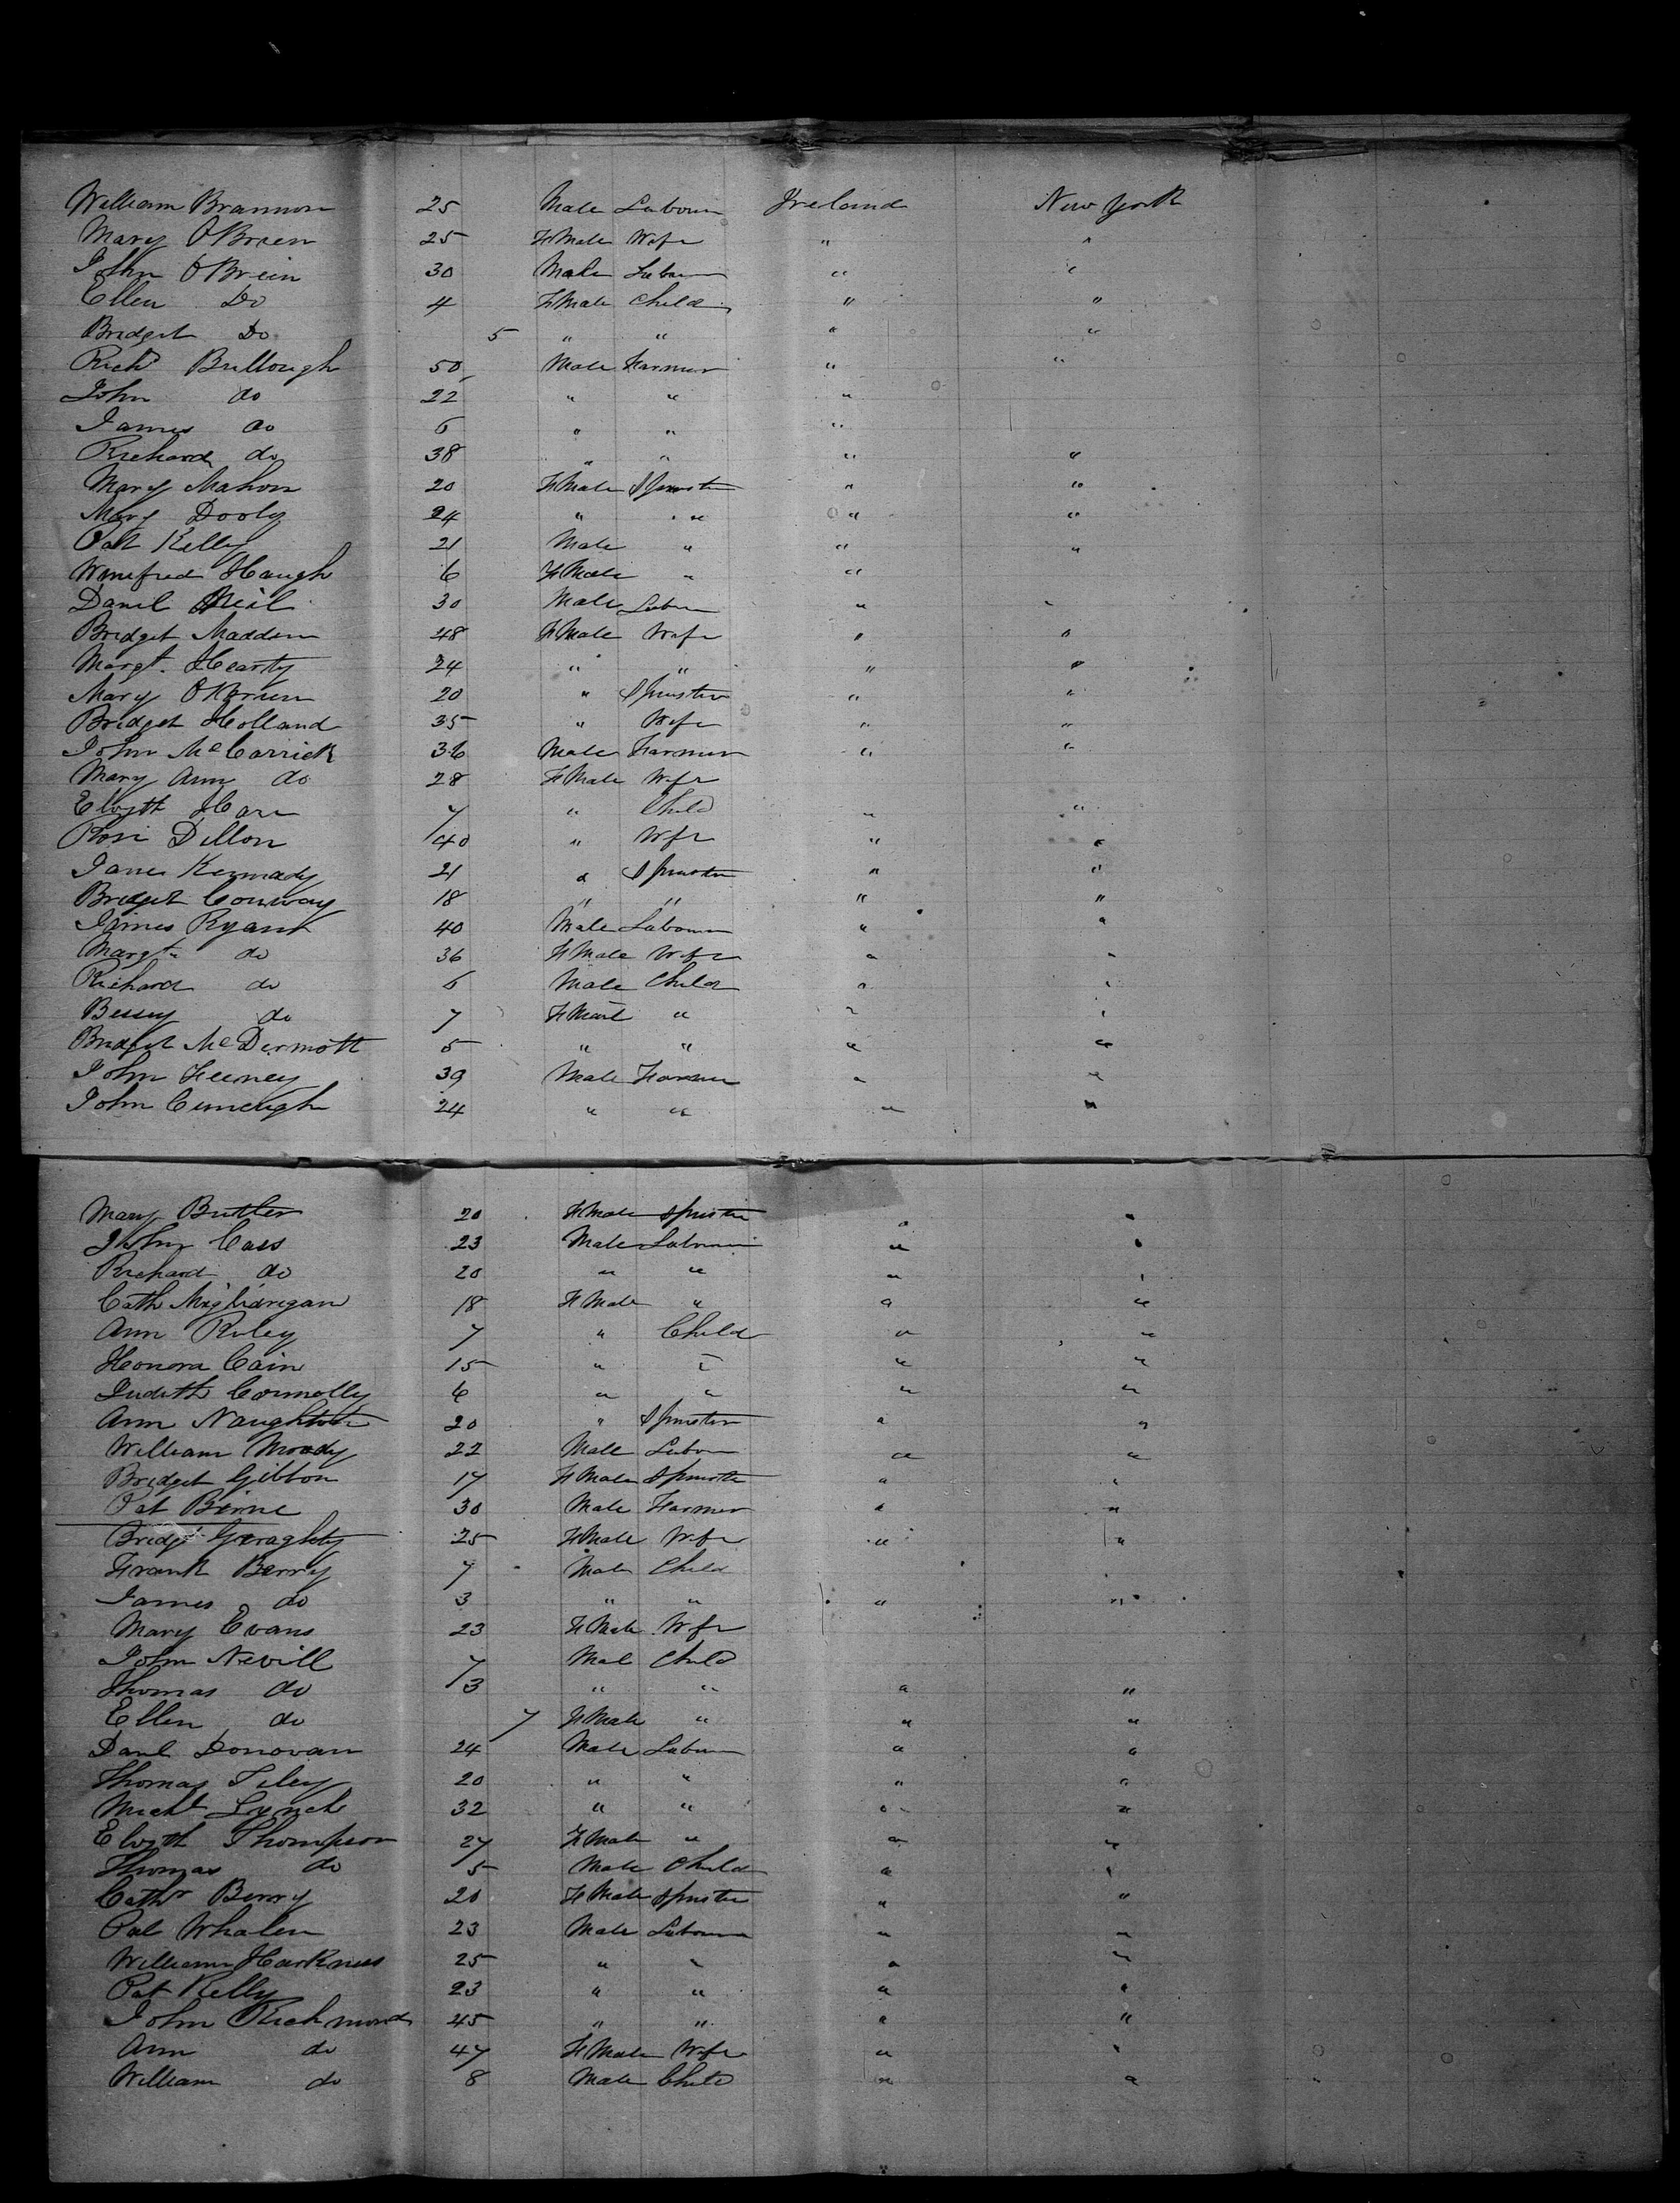 William Brannon 25 Male Labour Ireland New York
Mary O'Brien 25 FMale Wife " "
John O'Brein 30 Male Labour " "
Ellen Do 4 FMale Child " "
Bridget Do 5 " " " "
Richd Bullough 50 Male Farmer " "
John do 22 " " "
James do 6 " " "
Richard do 38 " " " "
Mary Mahon 20 FMale Spinster " "
Mary Dooly 24 " " " "
Pat Kelly 21 Male " " "
Winefred Haugh 6 FMale " "
Danil Neil 30 Male Labour " "
Bridget Madden 48 FMale Wife " "
Margt. Hearty 24 " " " "
Mary O'Brien 20 " Spinster " "
Bridget Holland 35 " Wife " "
John McCarrick 36 Male Farmer " "
Mary Ann do 28 FMale Wife
Elizth Hare 7 " Child " "
Rose Dillon 40 " Wife " "
Janes Kennady 21 " Spinster " "
Bridget Conway 18 " " " "
James Ryan 40 Male Labour " "
Margt do 36 FMale Wife " "
Richard do 6 Male Child " "
Bessey do 7 FMale " " "
Bridget McDermott 5 " " " "
John Feeney 39 Male Farmer " "
John 24 " " " "
Mary Butler 20 FMale Spinster " "
John Cass 23 Male Labour " "
Richard do 20 " " " "
Cath 18 FMale " " "
Ann Riley 7 " Child " "
Honora Cain 15 " " " "
Judith Connolly 6 " " " "
Ann Naughton 20 " Spinster " "
William Moody 22 Male Labour " "
Bridget Gibbon 17 FMale Spinster " "
Pat Birne 30 Male Farmer " "
Bridgt Geraghty 25 FMale Wife " "
Frank Berry 7 Male Child
James do 3 " " " "
Mary Evans 23 FMale Wife
John Nevill 7 Mal Child
Thomas do 3 " " " "
Ellen do 7 FMale " " "
Danl Donovan 24 Male Labour " "
Thomas 20 " " " "
Michl Lynch 32 " " " "
Elizth Thompson 27 FMale " " "
Thomas do 5 Male Child " "
Cathr Berry 20 FMale Spinster " "
Pat Whalen 23 Male Labour " "
William Harkness 25 " " " "
Pat Kelly 23 " " " "
John Richmond 45 " " " "
Ann do 47 FMale Wife " "
William do 8 Male Child " "